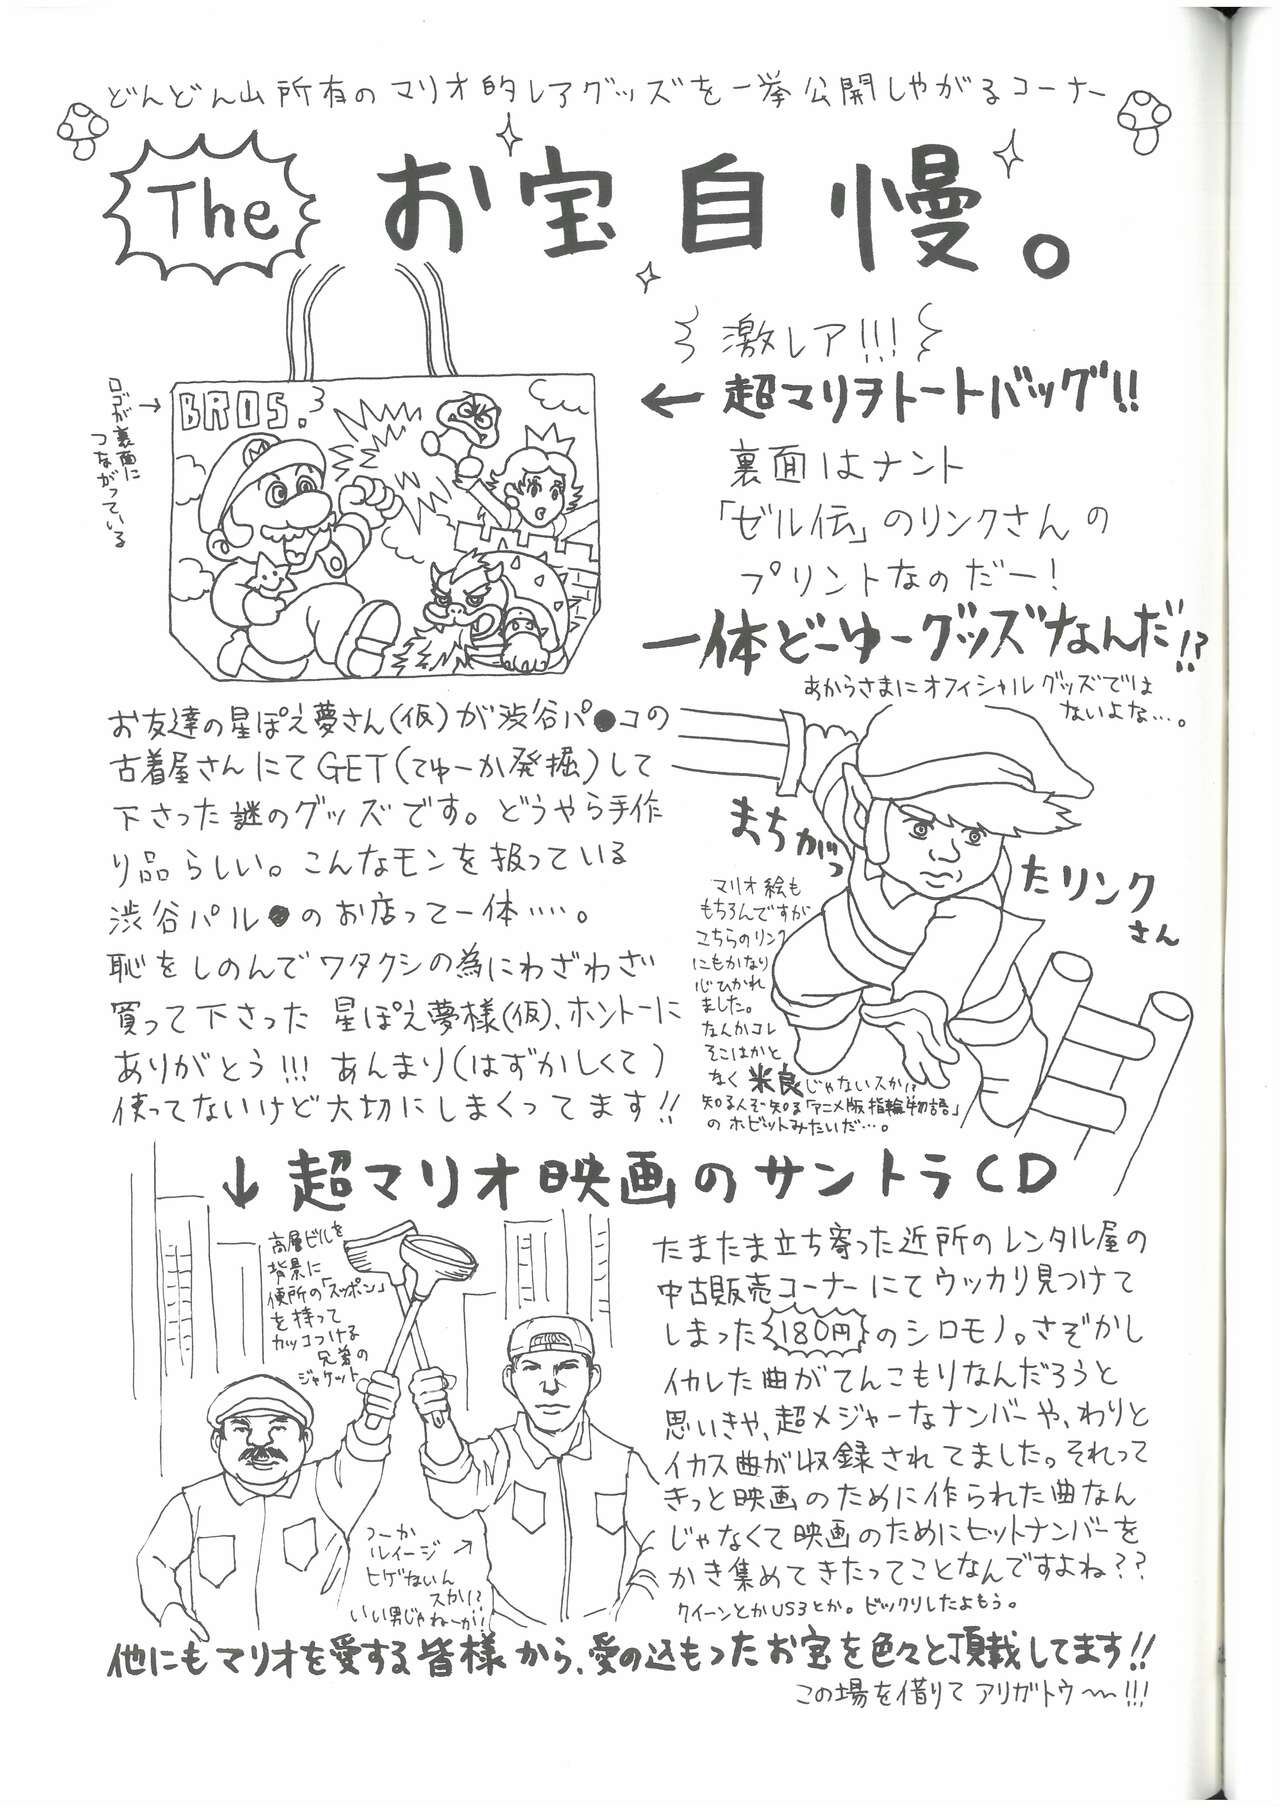 どんどん山所有のマリオ的レアグッズを一挙公開しやがるコーナー
The お宝自慢。
激レア!!!
← 超マリヲトートバッグ!!
裏面はナント
「ゼル伝」のリンクさんの
プリントなのだー!
一体どーゆーグッズなんだ!?
あからさまにオフィシャルグッズでは
ないよな…。
ロゴが裏面に
つながっている
→
BROS.
M
お友達の星ぽえ夢さん(仮)が渋谷パ●コの
古着屋さんにてGET(てゅーか発掘)して
下さった謎のグッズです。どうやら手作
り品らしい。こんなモンを扱っている
渋谷パル●のお店って一体…。
恥をしのんでワタクシの為にわざわざ
買って下さった 星ぽえ夢様(仮)、ホントーに
ありがとう!!! あんまり(はずかしくて)
使ってないけど大切にしまくってます!!
まちがっ
たリンク
さん
マリオ絵も
もちろんですが
こちらのリンク
にもかなり
心ひかれ
ました。
なんかコレ
そこはかと
なく米良じゃないスか!?
知る人ぞ知る「アニメ版指輪物語」
のホビットみたいだ…。
↓ 超マリオ映画のサントラCD
高層ビルを
背景に
便所の「スッポン」
を持って
カッコつける
兄弟の
ジャケット
つーか
ルイージ →
ヒゲないん
スか!?
いい男じゃねーか!!
たまたま立ち寄った近所のレンタル屋の
中古販売コーナーにてウッカリ見つけて
しまった 180円 のシロモノ。さぞかし
イカレた曲がてんこもりなんだろうと
思いきや、超メジャーなナンバーや、わりと
イカス曲が収録されてました。それって
きっと映画のために作られた曲なん
じゃなくて映画のためにヒットナンバーを
かき集めてきたってことなんですよね??
クイーンとかUS3とか。ビックリしたよもう。
他にもマリオを愛する皆様から、愛の込もったお宝を色々と頂戴してます!!
この場を借りて アリガトウ〜!!!